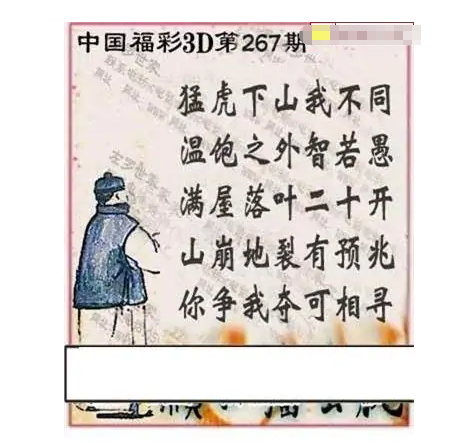 中国福彩3D第267期
猛虎下山我不同
温饱之外智若愚
满屋落叶二十开
山崩地裂有预兆
你争我夺可相寻